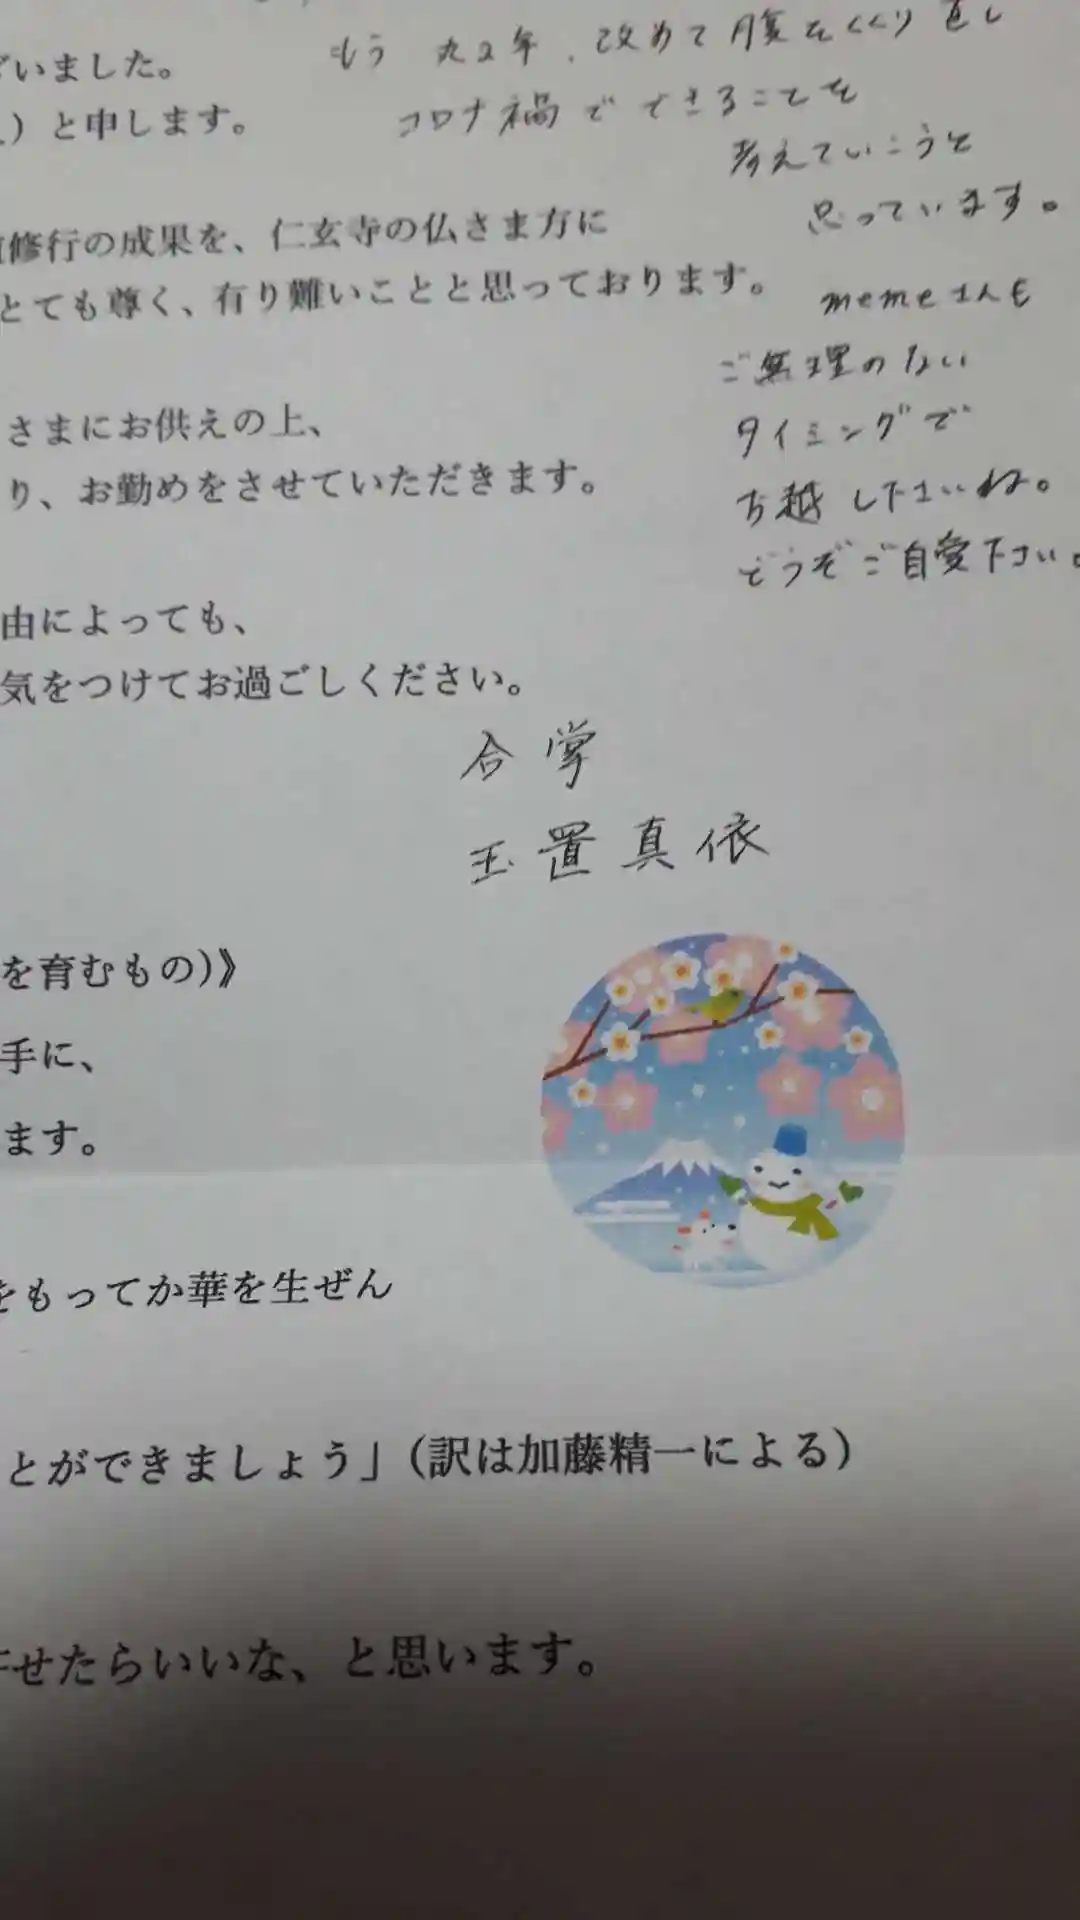 もう 丸2年、改めて腹をくくり直し
コロナ禍でできることを
考えていこうと
思っています。
memeさんも
ご無理のない
タイミングで
お越し下さいね。
どうぞご自愛下さい。
いました。
）と申します。
修行の成果を、仁玄寺の仏さま方に
とても尊く、有り難いことと思っております。
さまにお供えの上、
り、お勤めをさせていただきます。
由によっても、
気をつけてお過ごしください。
合掌
玉置真依
を育むもの)》
手に、
ます。
をもってか華を生ぜん
とができましょう」(訳は加藤精一による)
せたらいいな、と思います。